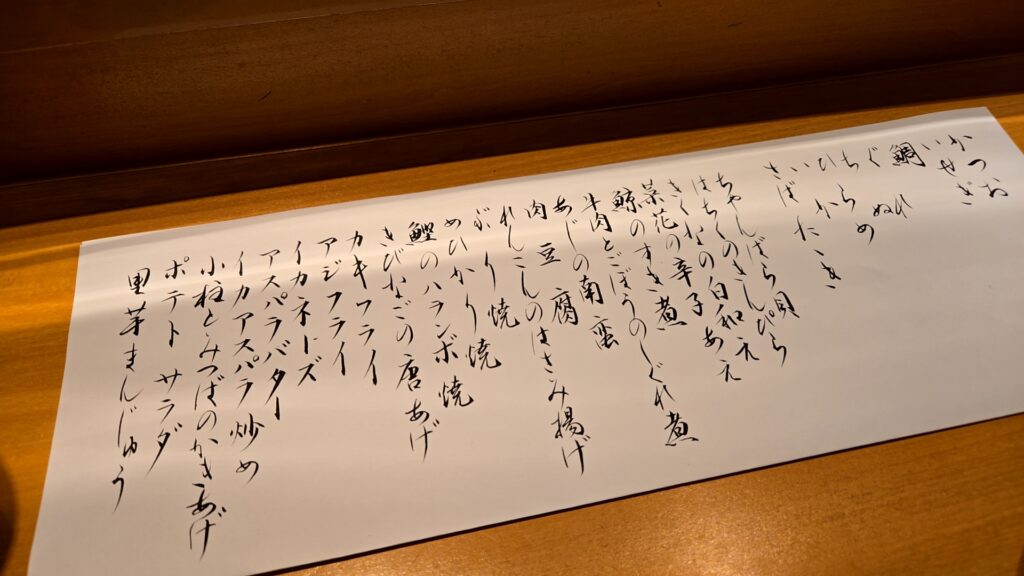 かつお
いせぎ
鯛
ぐじ
ちぬ
ひらめ
いか
さばたたき
ちゃんばら貝
はちくのきんぴら
きくなの白和え
菜花の辛子あえ
鯨のすき煮
牛肉とごぼうのしぐれ煮
あじの南蛮
肉豆腐
れんこんのはさみ揚げ
ぶり焼
めひかり焼
鰹のハランボ焼
きびなごの唐あげ
カキフライ
アジフライ
イカネーズ
アスパラバター
イカアスパラ炒め
小柱とみつばのかきあげ
ポテトサラダ
里芋まんじゅう